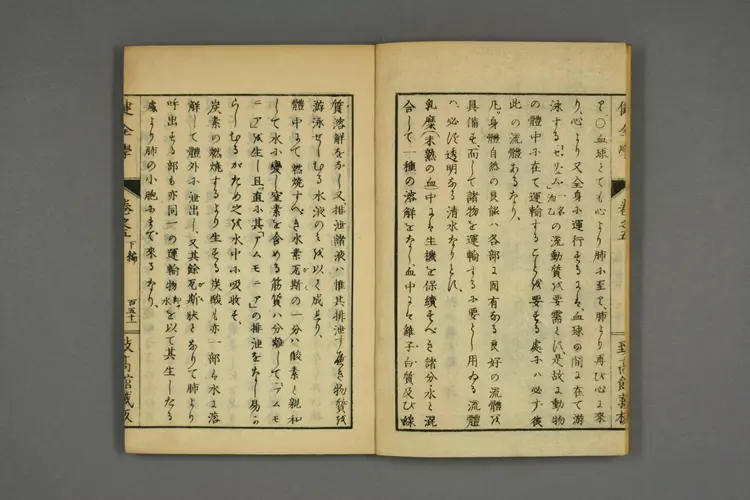 そ、〇血球とても心より肺に至り、肺より再び心に來
り、心より又全身に運行するに、血球の間に在て游
泳する「セリユム」一名の流動質を要需とす、是故に動物
の體中に在て運輸することを要する處には必ず後
此の流體あるなり、
凡身體自然の良能は各部に固有なる良好の流體を
具備す、而して諸物を運輸するに要とし用ゐる流體
は、必ず透明なる清水なりとす、
乳糜(未熟の血中にて生機を保續すべき諸分水と混
合して一種の溶解をなし、血中にて雞子白質及び線
質溶解をなし又排泄諸液は惟其排泄すべき物質を
游泳せしむる水液のみを以て成れり、
體中にて燃燒すべき水素瓦斯の一分は酸素と親和
して水に變し窒素を含める筋質は分離して「アムモ
ニア」を生し且直に其「アムモニア」の排泄をなし易か
らしむるがため之を水中に吸收す、
炭素の燃燒するより生ずる炭酸も亦一部は水に溶
解して體外に泄出し、又其餘瓦斯狀となりて肺より
呼出する部も亦同一の運輸物即水を以て其生したる
處より肺の小胞にまで來るなり、
健全學
卷之五
下編
百五十一
致高館藏版